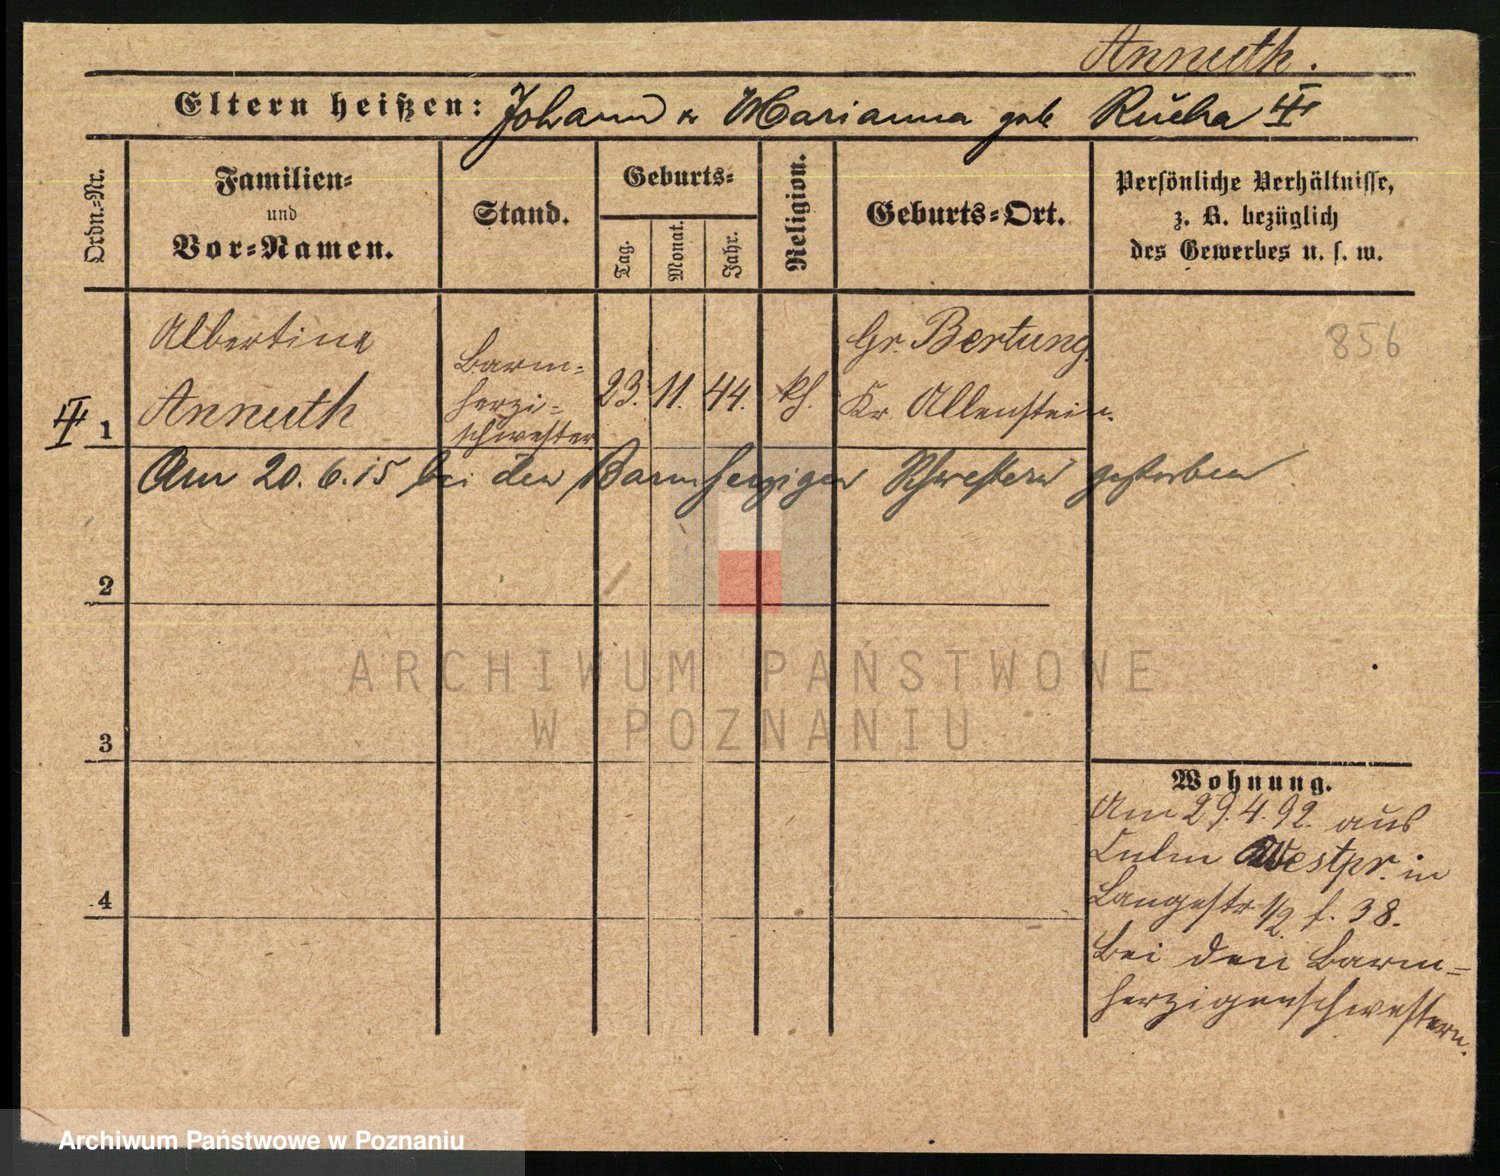 Annuth.
Eltern heißen: Johann & Marianna geb. Rucha
Ordn.-Nr.
Familien-
und
Vor-Namen.
Stand.
Geburts-
Tag.
Monat.
Jahr.
Religion.
Geburts-Ort.
Persönliche Verhältnisse,
z. B. bezüglich
des Gewerbes u. s. w.
856
Albertine
Annuth
Barm-
herzi-
schwester
23. 11. 44. kh.
Gr. Bertung
Kr. Allenstein.
1
Am 20.6.15 bei den Barmherzigen Schwestern gestorben
2
3
4
Wohnung.
Am 29.4.92. aus
Culm Westpr. in
Langestr 1/2 f. 38.
bei den Barm-
herzigenschwestern.
ARCHIWUM PAŃSTWOWE
W POZNANIU
Archiwum Państwowe w Poznaniu